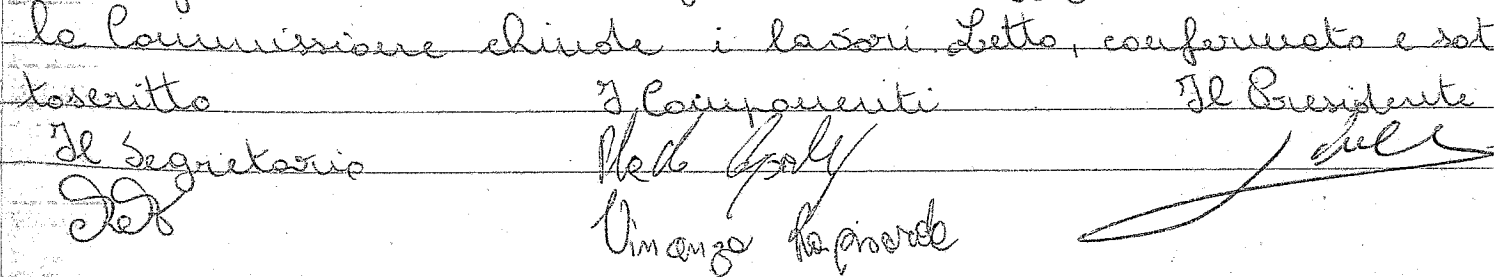 la Commissione chiude i lavori. Letto, confermato e sot
toscritto I Componenti Il Presidente
Il Segretario
Vincenza Rapisarda